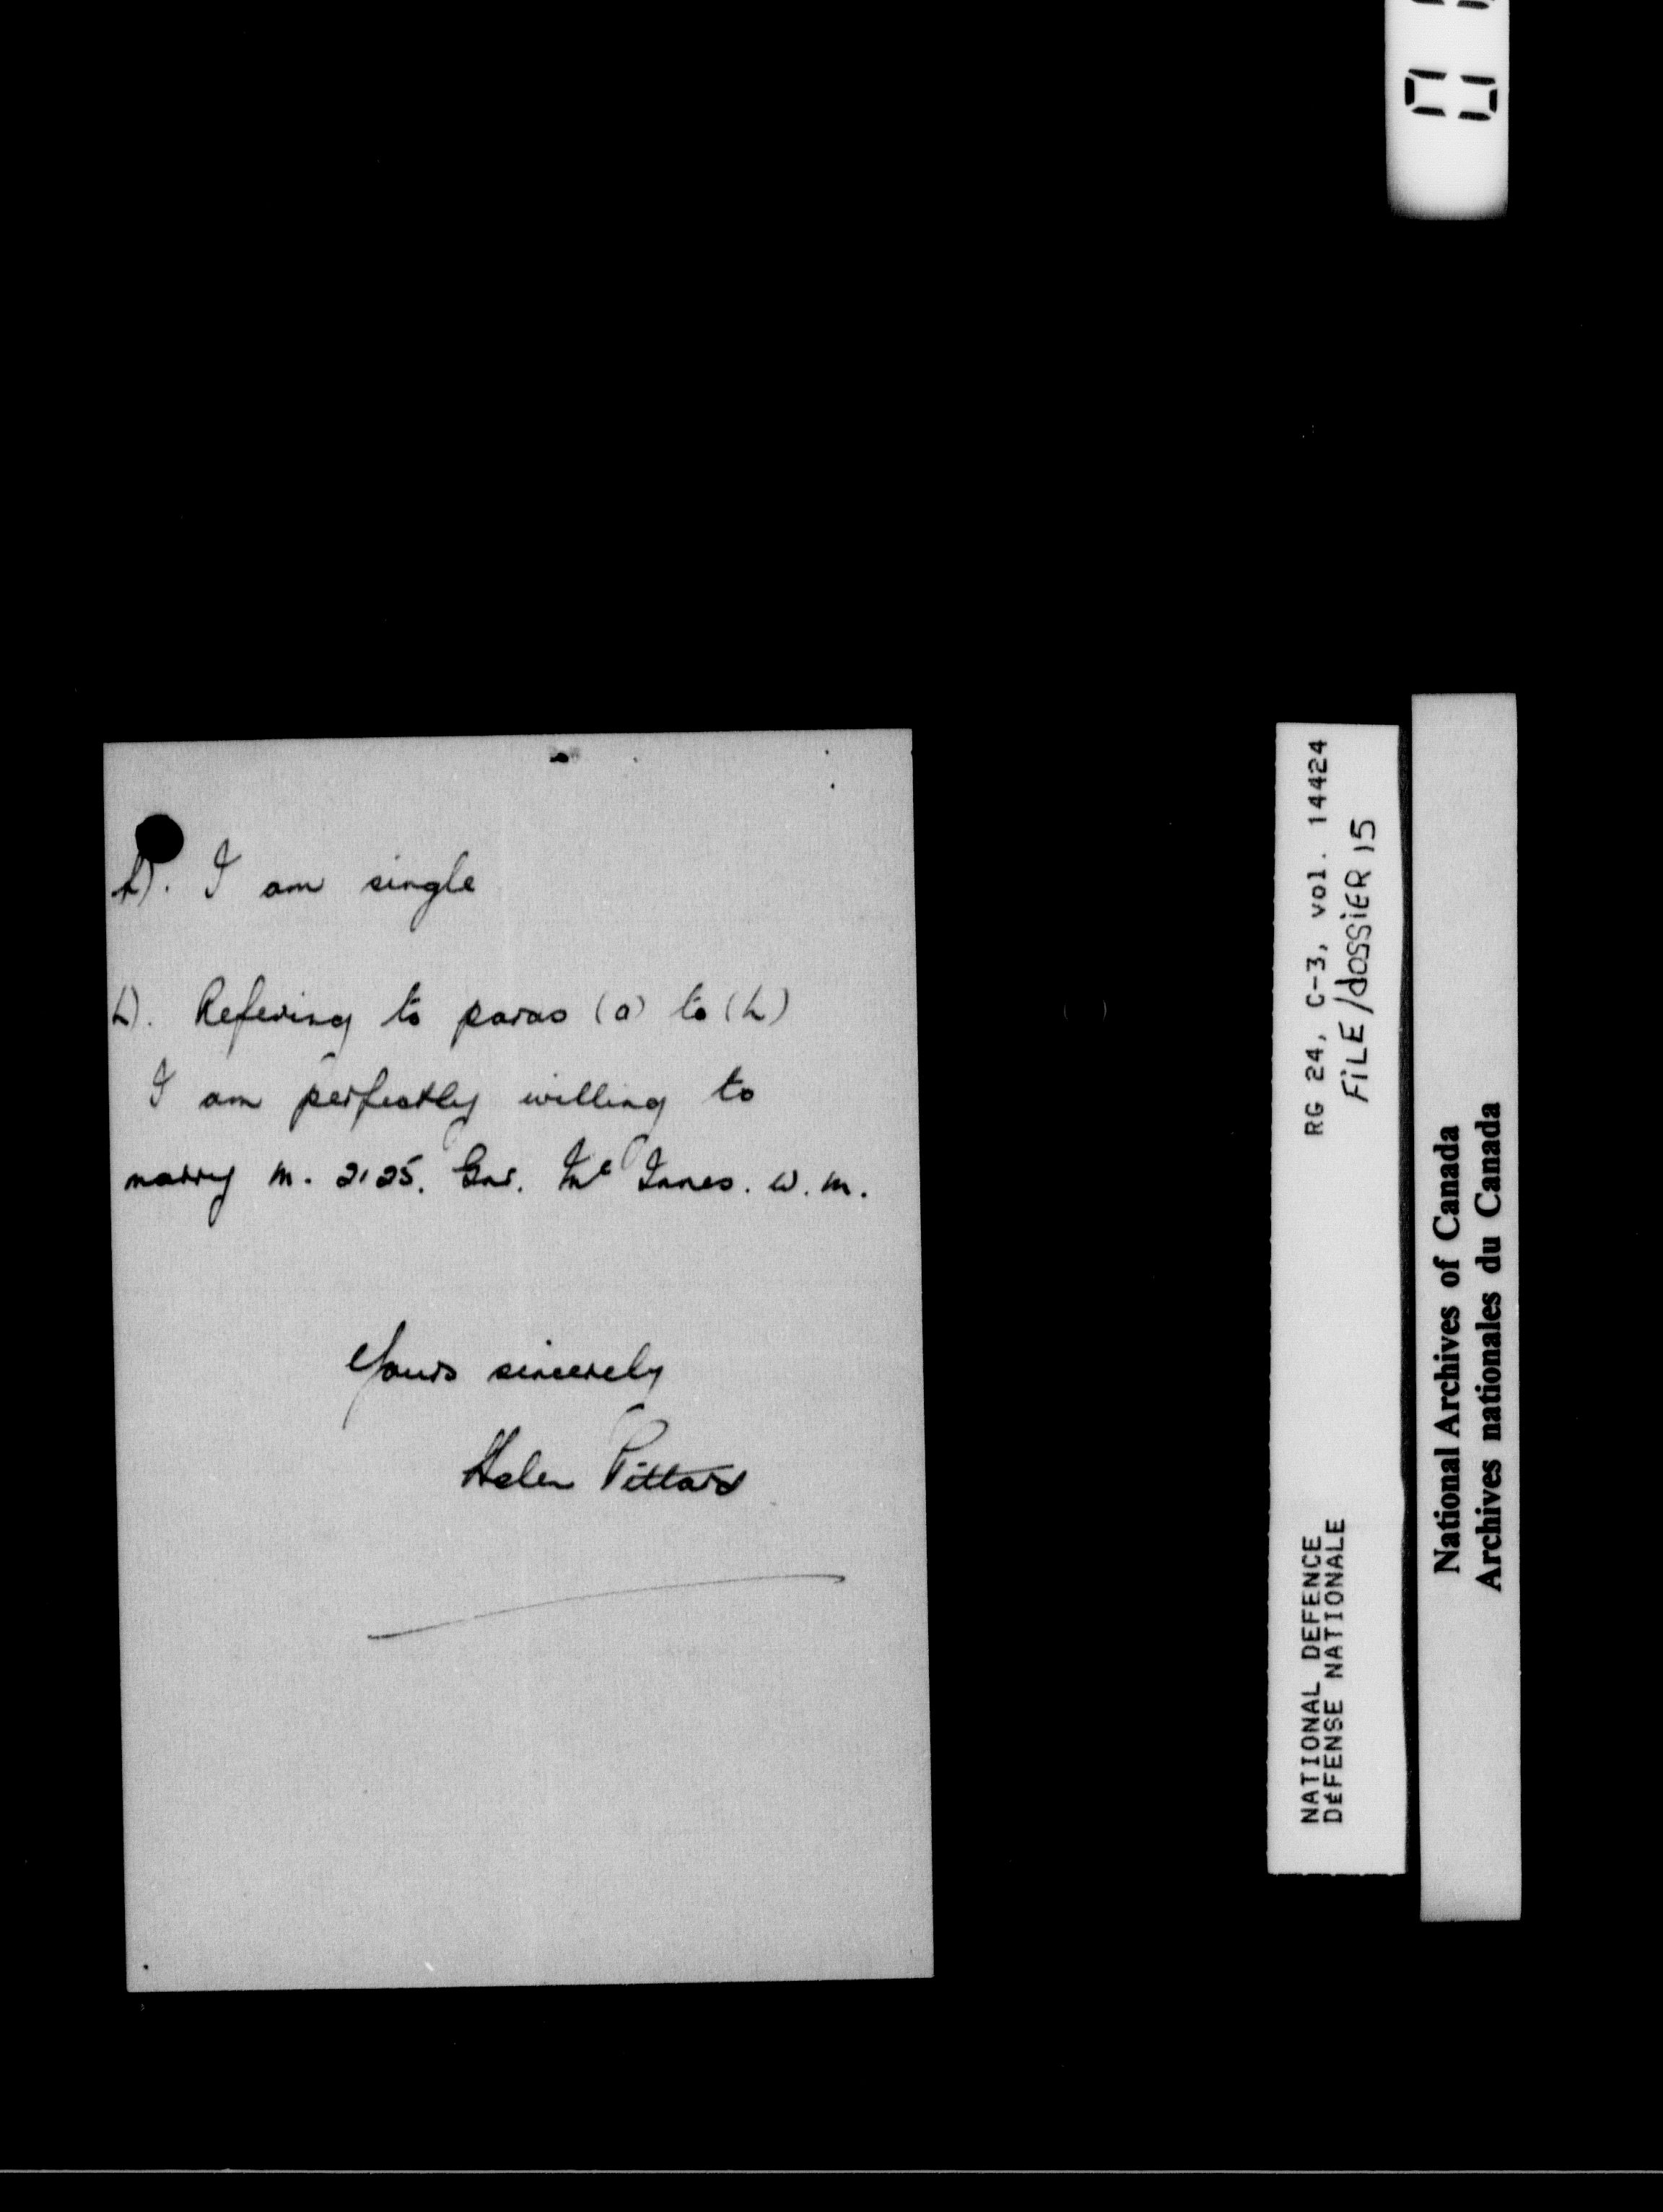 h). I am single
h). Refering to paras (a) to (h)
I am perfectly willing to
marry M. 2125. Gnr. McInnes. W. M.
Yours sincerely
Helen Pittard
RG 24, C-3, vol. 14424
FILE/dossier 15
NATIONAL DEFENCE
DÉFENSE NATIONALE
National Archives of Canada
Archives nationales du Canada